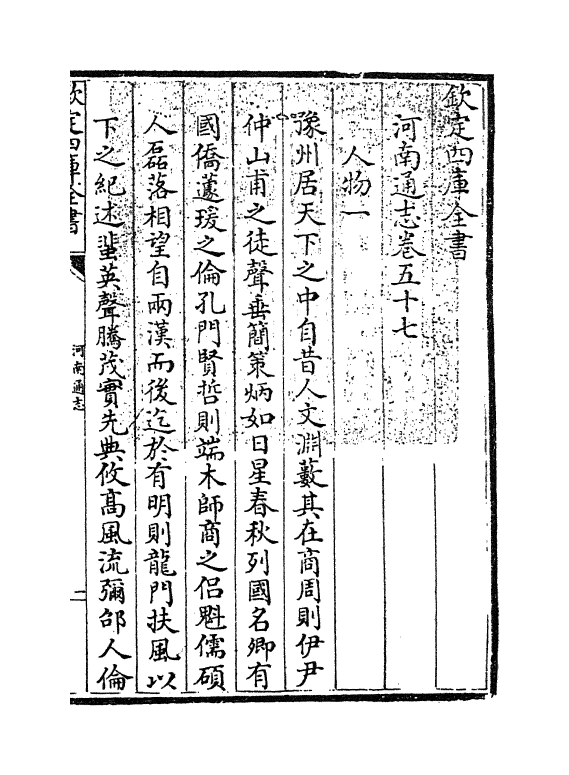 欽定四庫全書
河南通志卷五十七
人物一
豫州居天下之中自昔人文淵藪其在商周則伊尹
仲山甫之徒聲垂簡策炳如日星春秋列國名卿有
國僑蘧瑗之倫孔門賢哲則端木師商之侣魁儒碩
人磊落相望自兩漢而後迄於有明則龍門扶風以
下之紀述蜚英聲騰茂實先典攸高風流彌邵人倫
欽定四庫全書
河南通志